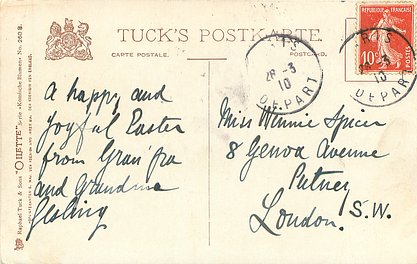 TUCK'S POSTKARTE.
CARTE POSTALE.
POSTCARD.
Raphael Tuck & Sons' "OILETTE" Serie
No. 260 B.
REPUBLIQUE FRANÇAISE
10
POSTES
26 - 3
10
DEPART
26 - 3
10
DEPART
A happy and
Joyful Easter
from Gran'pa
and Grandma
Miss Winnie Spicer
8 Genoa Avenue
Putney
London. S.W.